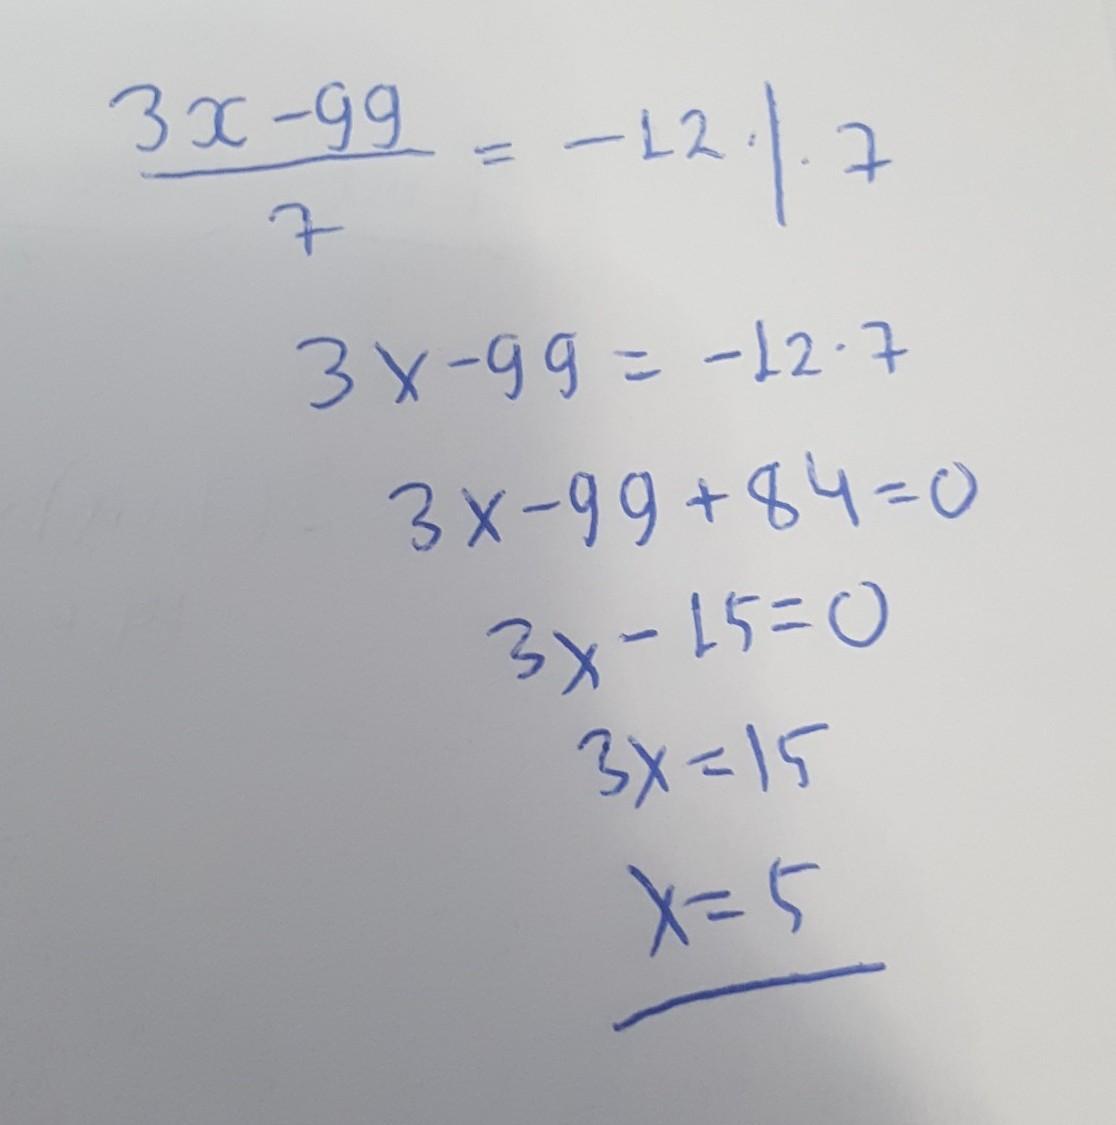 3x-99 = -12 ·|· 7
7
3x-99 = -12·7
3x-99+84=0
3x-15=0
3x=15
x=5